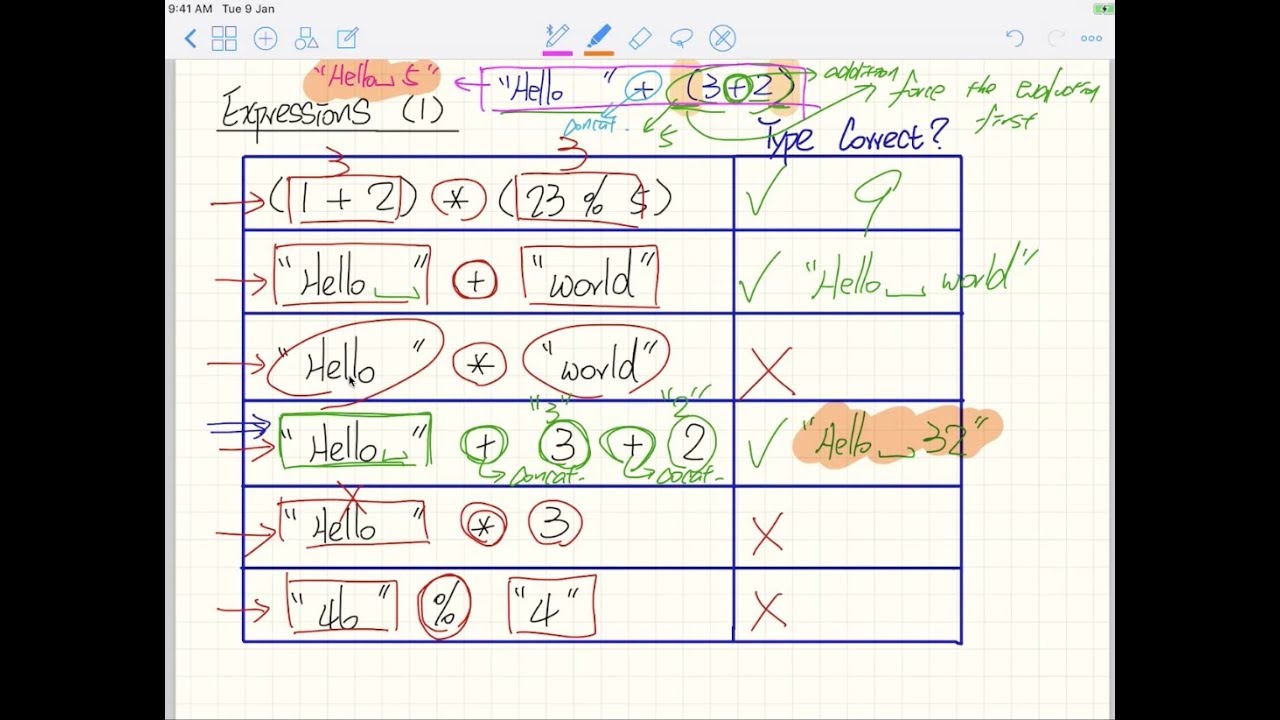 9:41 AM Tue 9 Jan
"Hello␣5" ← "Hello " + (3+2) → addition force the evaluation
Expressions (1) concat. 5 first
Type Correct?
3 3
→ (1 + 2) * (23 % 5) ✓ 9
→ "Hello␣" + "world" ✓ "Hello␣world"
→ "Hello " * "world" X
"3" "2"
→ "Hello␣" + 3 + 2 ✓ "Hello␣32"
concat. cocat.
→ "Hello " * 3 X
→ "46" % "4" X